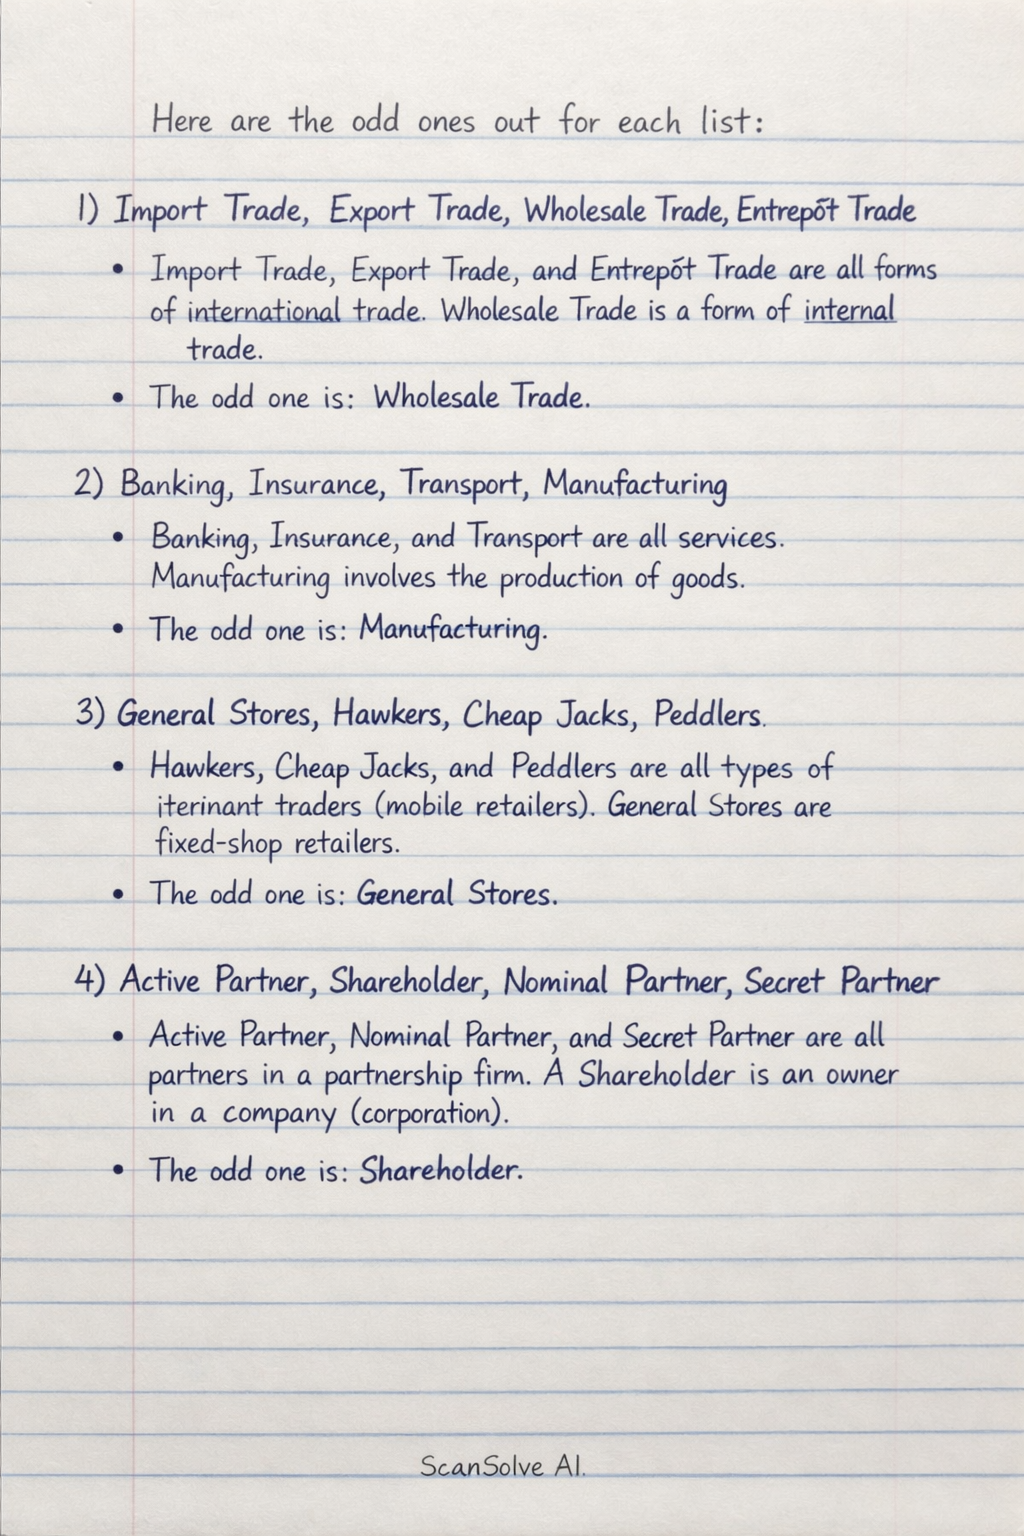 Here are the odd ones out for each list:
1) Import Trade, Export Trade, Wholesale Trade, Entrepót Trade
• Import Trade, Export Trade, and Entrepót Trade are all forms
of international trade. Wholesale Trade is a form of internal
trade.
• The odd one is: Wholesale Trade.
2) Banking, Insurance, Transport, Manufacturing
• Banking, Insurance, and Transport are all services.
Manufacturing involves the production of goods.
• The odd one is: Manufacturing.
3) General Stores, Hawkers, Cheap Jacks, Peddlers.
• Hawkers, Cheap Jacks, and Peddlers are all types of
iterinant traders (mobile retailers). General Stores are
fixed-shop retailers.
• The odd one is: General Stores.
4) Active Partner, Shareholder, Nominal Partner, Secret Partner
• Active Partner, Nominal Partner, and Secret Partner are all
partners in a partnership firm. A Shareholder is an owner
in a company (corporation).
• The odd one is: Shareholder.
ScanSolve AI.